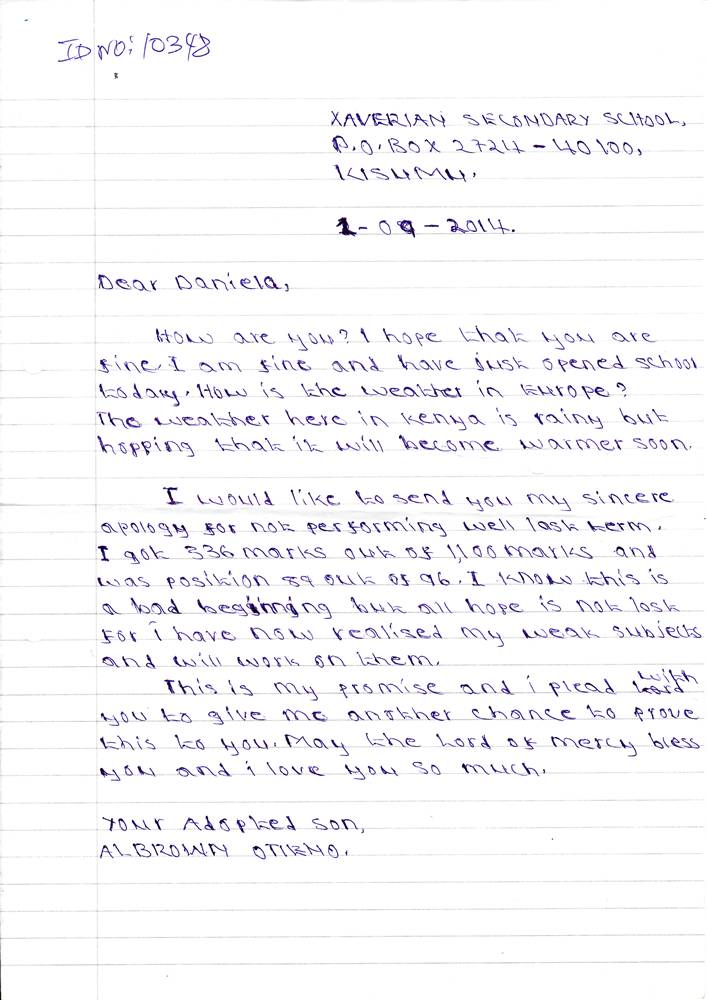 ID NO: 10348
XAVERIAN SECONDARY SCHOOL,
P.O. BOX 2724 - 40100,
KISUMU.
1-09-2014.
Dear Daniela,
How are you? I hope that you are
fine. I am fine and have just opened school
today. How is the weather in Europe?
The weather here in Kenya is rainy but
hopping that it will become warmer soon.
I would like to send you my sincere
apology for not performing well last term.
I got 336 marks out of 1,100 marks and
was position 89 out of 96. I know this is
a bad beginning but all hope is not lost
for i have now realised my weak subjects
and will work on them.
This is my promise and i plead with
you to give me another chance to prove
this to you. May the Lord of mercy bless
you and i love you so much.
Your Adopted son,
ALBROWN OTIENO.